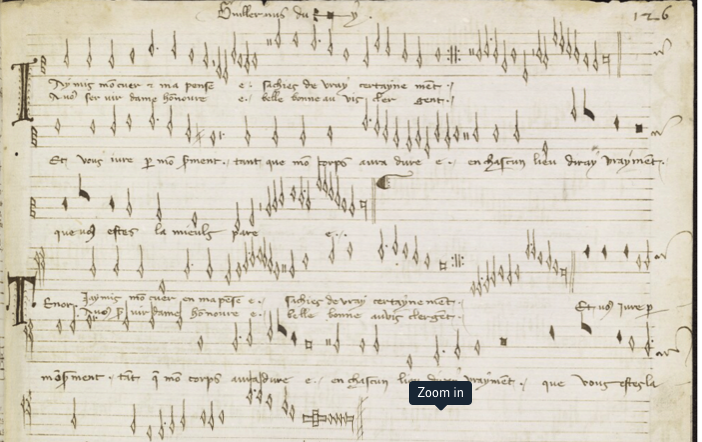 Guillermus du fay.
126
Jaymis mō cuer & ma pense e. sachies de vray certayne mēt.
A uo9 ser uir dame hōnoure e. belle bonne au vis cler gent.
Et vous iure p mō sment. tant que mō corps aura dure e. en chascun lieu diray vrayment.
que uo9 estes la mieulx pare e.
Tenor. Jaymis mō cuer en ma pēse e. sachies de vray certayne mēt.
A uo9 uir dame hōnoure e. belle bonne au vis clergent.
Et uo9 iure p
mō sment. tāt q mō corps aura dure e. en chascun lieu diray vrayment. que vous estes la
Zoom in